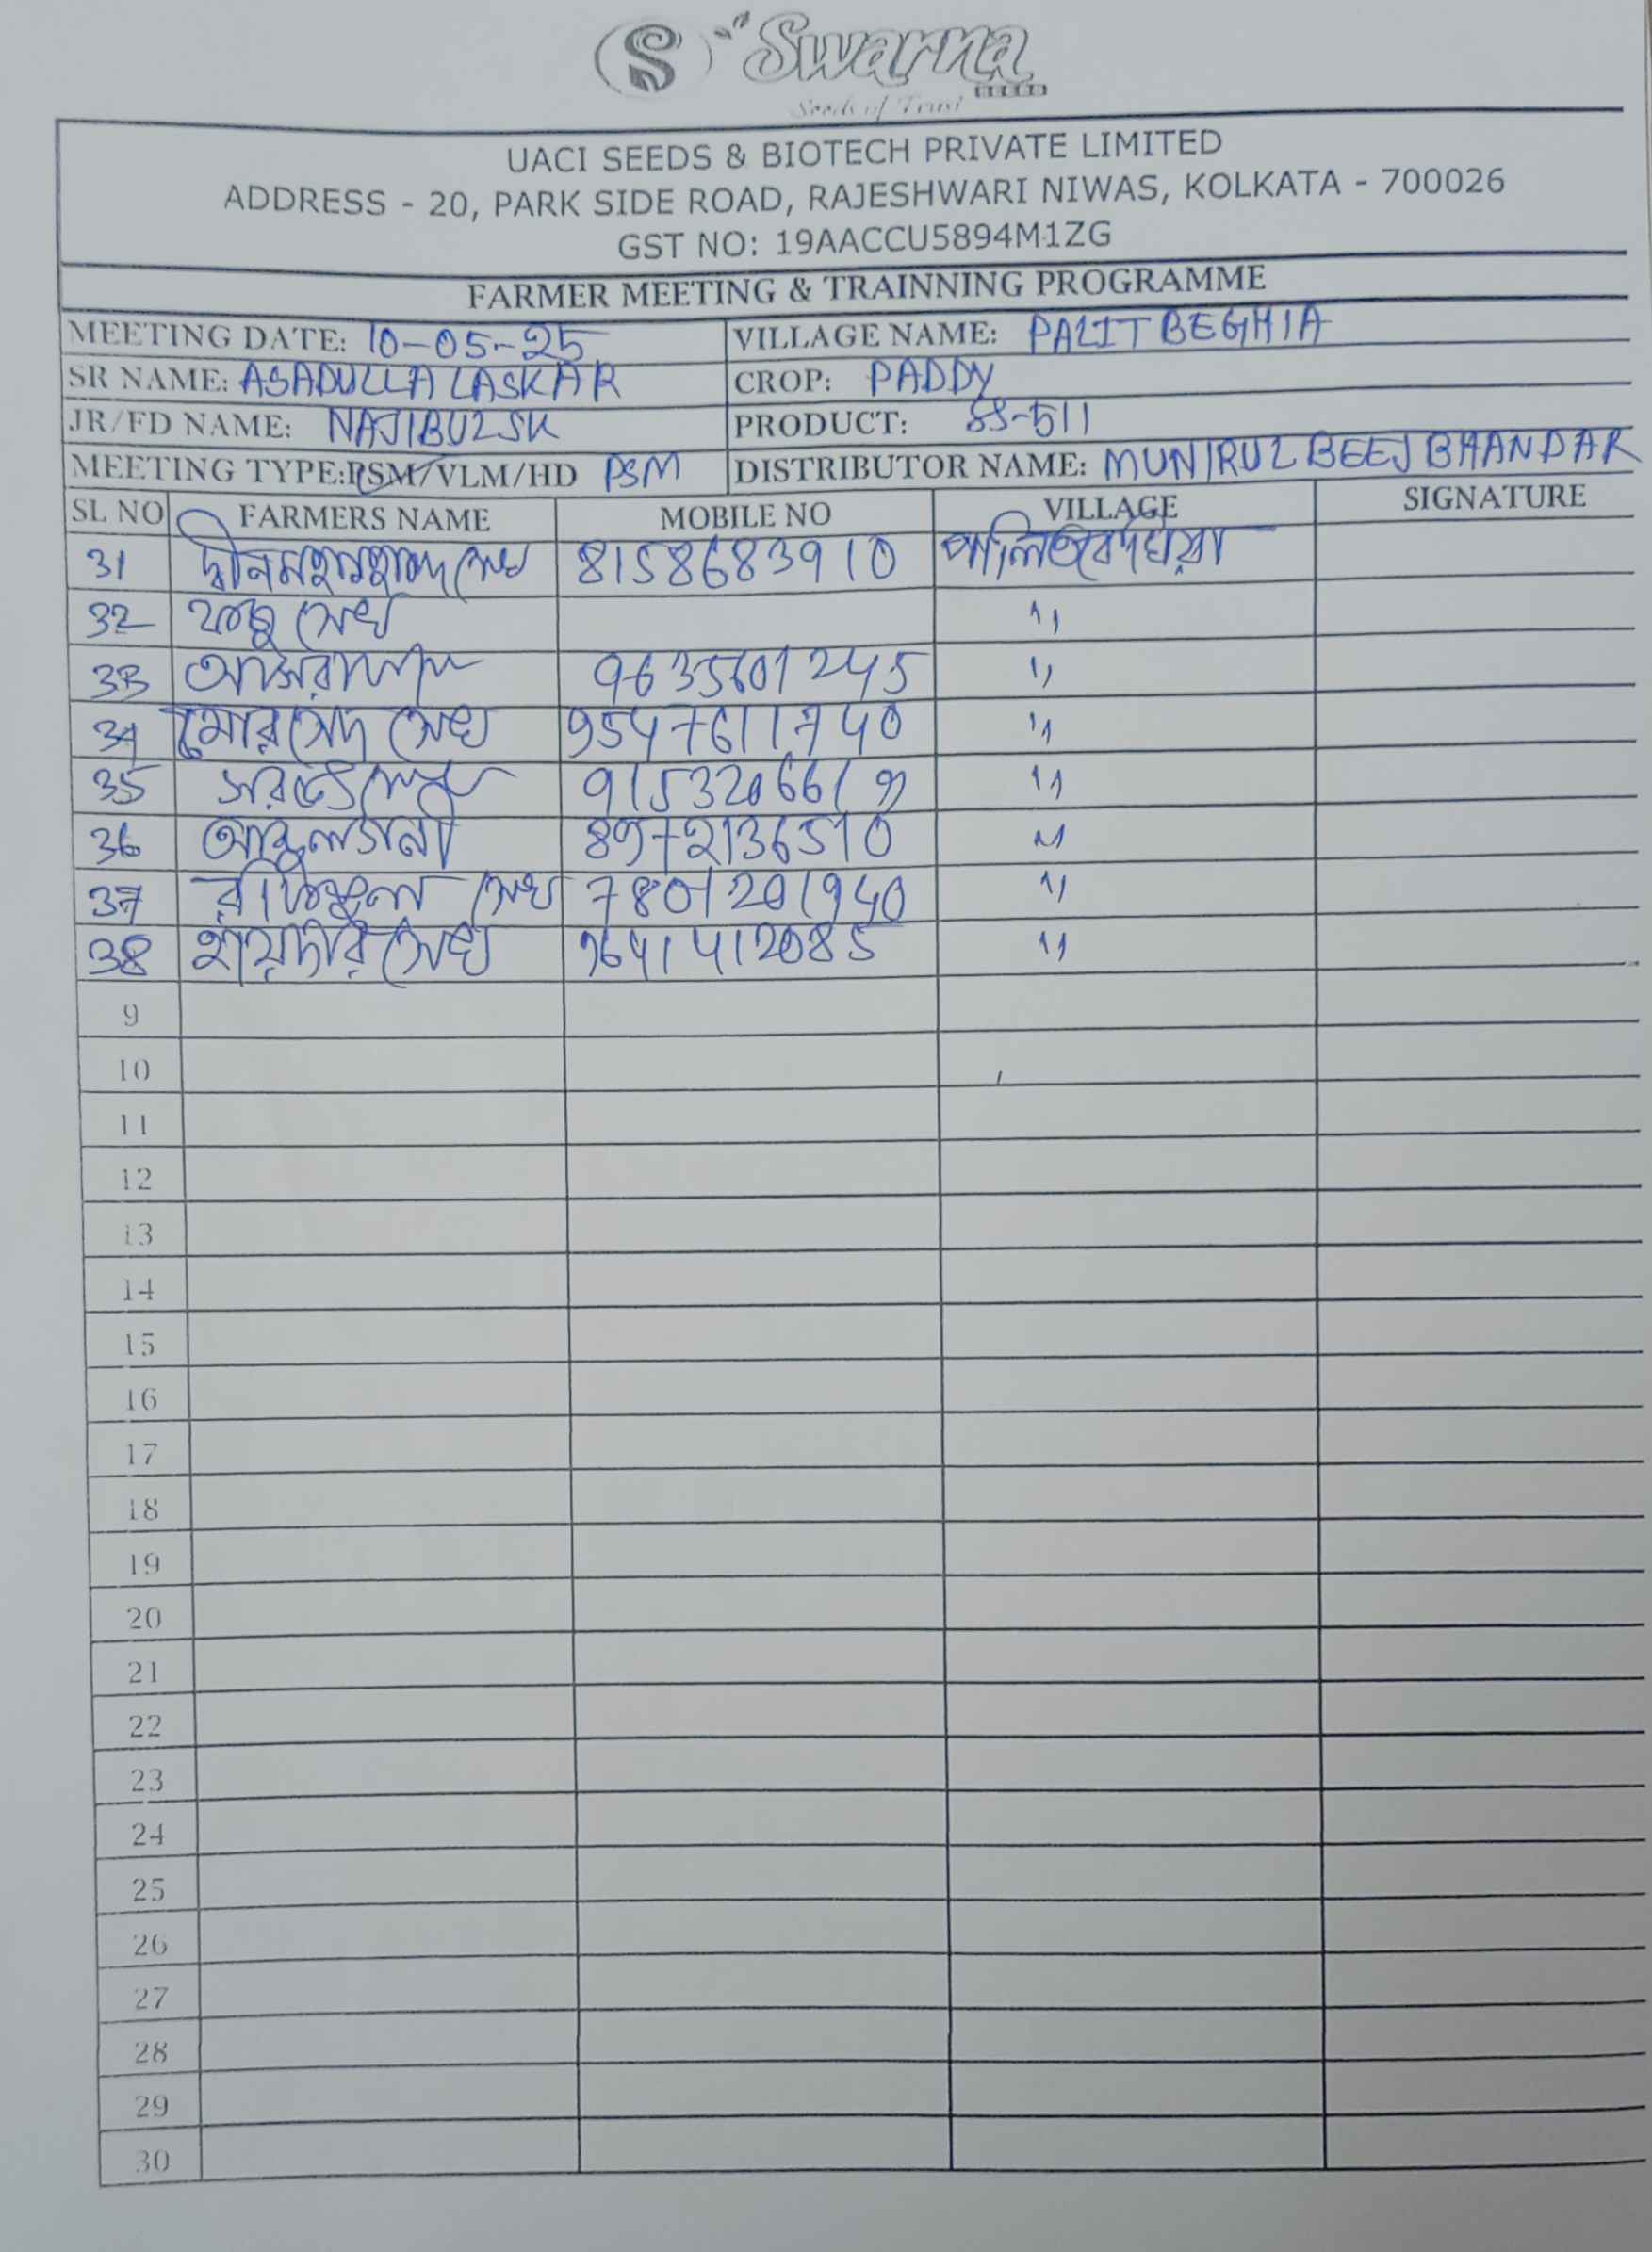 S Swarna
SEEDS
Seeds of Trust
UACI SEEDS & BIOTECH PRIVATE LIMITED
ADDRESS - 20, PARK SIDE ROAD, RAJESHWARI NIWAS, KOLKATA - 700026
GST NO: 19AACCU5894M1ZG
FARMER MEETING & TRAINNING PROGRAMME
MEETING DATE: 10-05-25 VILLAGE NAME: PALIT BEGHIA
SR NAME: ASADULLA LASKAR CROP: PADDY
JR/FD NAME: NAJIBUL SK PRODUCT: SS-511
MEETING TYPE:PSM/VLM/HD PSM DISTRIBUTOR NAME: MUNIRUL BEEJ BHANDAR
SL NO FARMERS NAME MOBILE NO VILLAGE SIGNATURE
31 সেখ 8158683910
32 সেখ 11
33 9635601245 11
34 সেখ 9547611740 11
35 11
36 8972136510 11
37 সেখ 7801201940 11
38 হায়দার সেখ 9641412085 11
9
10
11
12
13
14
15
16
17
18
19
20
21
22
23
24
25
26
27
28
29
30